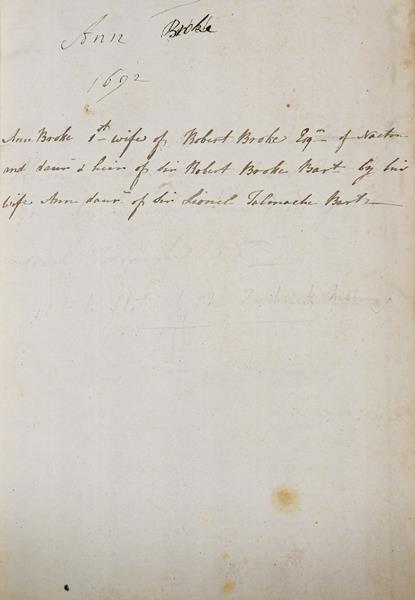 Ann Broke
1692
Ann Broke 1st wife of Robert Broke Esqre of Nacton
and daur & heir of Sir Robert Broke Bart by his
wife Ann daur of Sir Lionel Talmache Bart